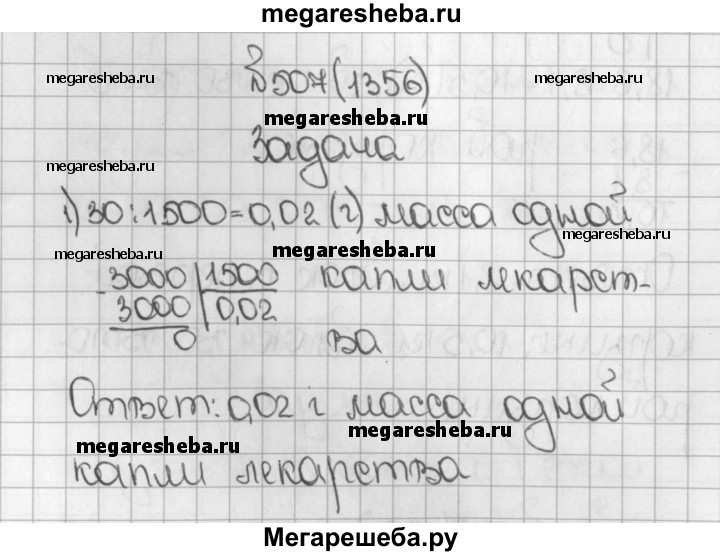 megaresheba.ru
№507(1356)
megaresheba.ru megaresheba.ru
megaresheba.ru
Задача
megaresheba.ru
1) 30:1500=0,02 (г) масса одной
megaresheba.ru
megaresheba.ru
-3000|1500 капли лекарст-
3000|0,02
0 ва
Ответ: 0,02 г масса одной
megaresheba.ru
megaresheba.ru
капли лекарства
Мегарешеба.ру